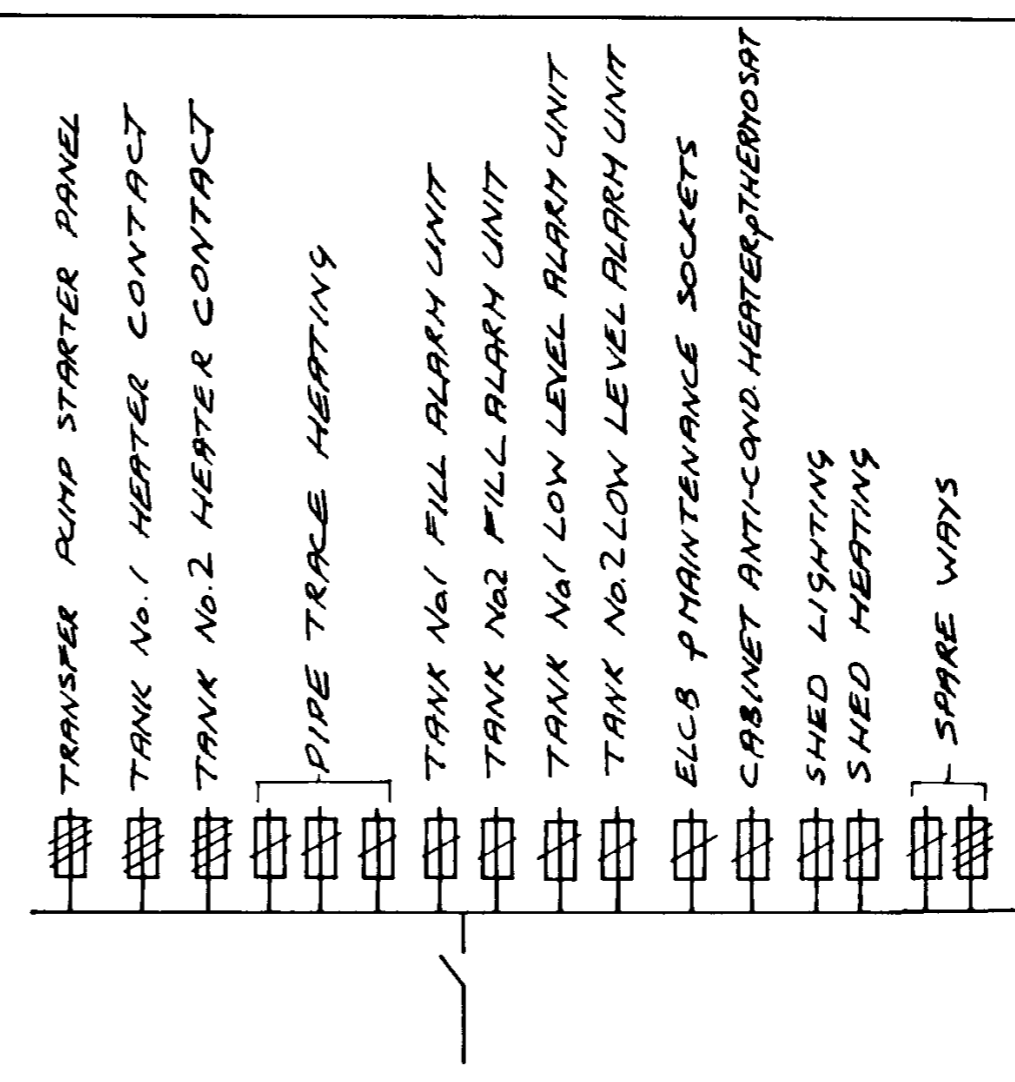 TRANSFER PUMP STARTER PANEL
TANK No.1 HEATER CONTACT
TANK No.2 HEATER CONTACT
PIPE TRACE HEATING
TANK No1 FILL ALARM UNIT
TANK No2 FILL ALARM UNIT
TANK No1 LOW LEVEL ALARM UNIT
TANK No.2 LOW LEVEL ALARM UNIT
ELCB & MAINTENANCE SOCKETS
CABINET ANTI-COND. HEATER & THERMOSAT
SHED LIGHTING
SHED HEATING
SPARE WAYS